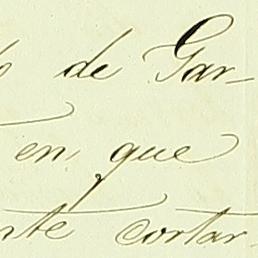 de Gar-
en que
cortar